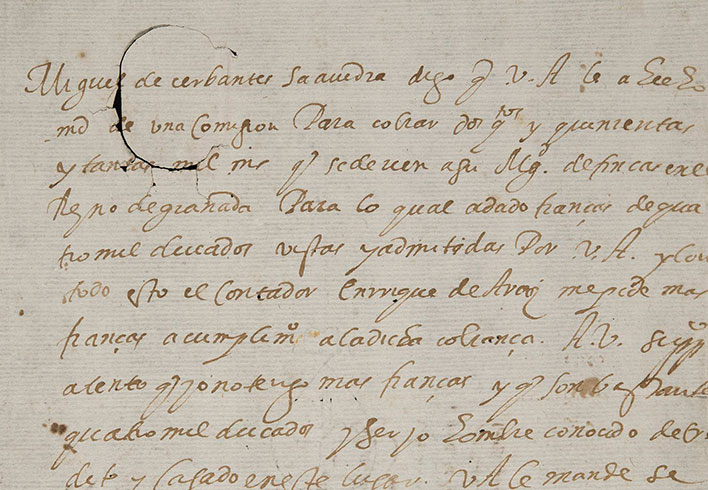 Miguel de cerbantes Saavedra digo q̃ V. A. le a hecho
md de una Comision Para cobrar dos qtos y quinientas
y tantas mil mrs q̃ sedeven a su Mgd. de fincas en el
Reyno de granada Para lo qual a dado fianças de qua
tro mil ducados vistas y admitidas Por V. A. y con
todo esto el Contador Enrrique de Araiz me pide mas
fianças a cumplimo a la dicha cobrança. A V. A. suppco
atento q̃ yo no tengo mas fianças y q̃ son bastante
quatro mil ducados y ser yo hombre conocido de cre
deto y casado en este lugar. V A le mande se